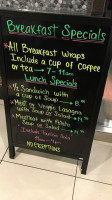 Breakfast Specials
* All Breakfast Wraps
Include a cup of coffee
or tea — 7 - 11am
Lunch Specials
* ½ Sandwich with
a cup of Soup
* Meat or Veggie Lasagna
with Soup or Salad
* Meatloaf with
Soup or Salad
NO EXCEPTIONS